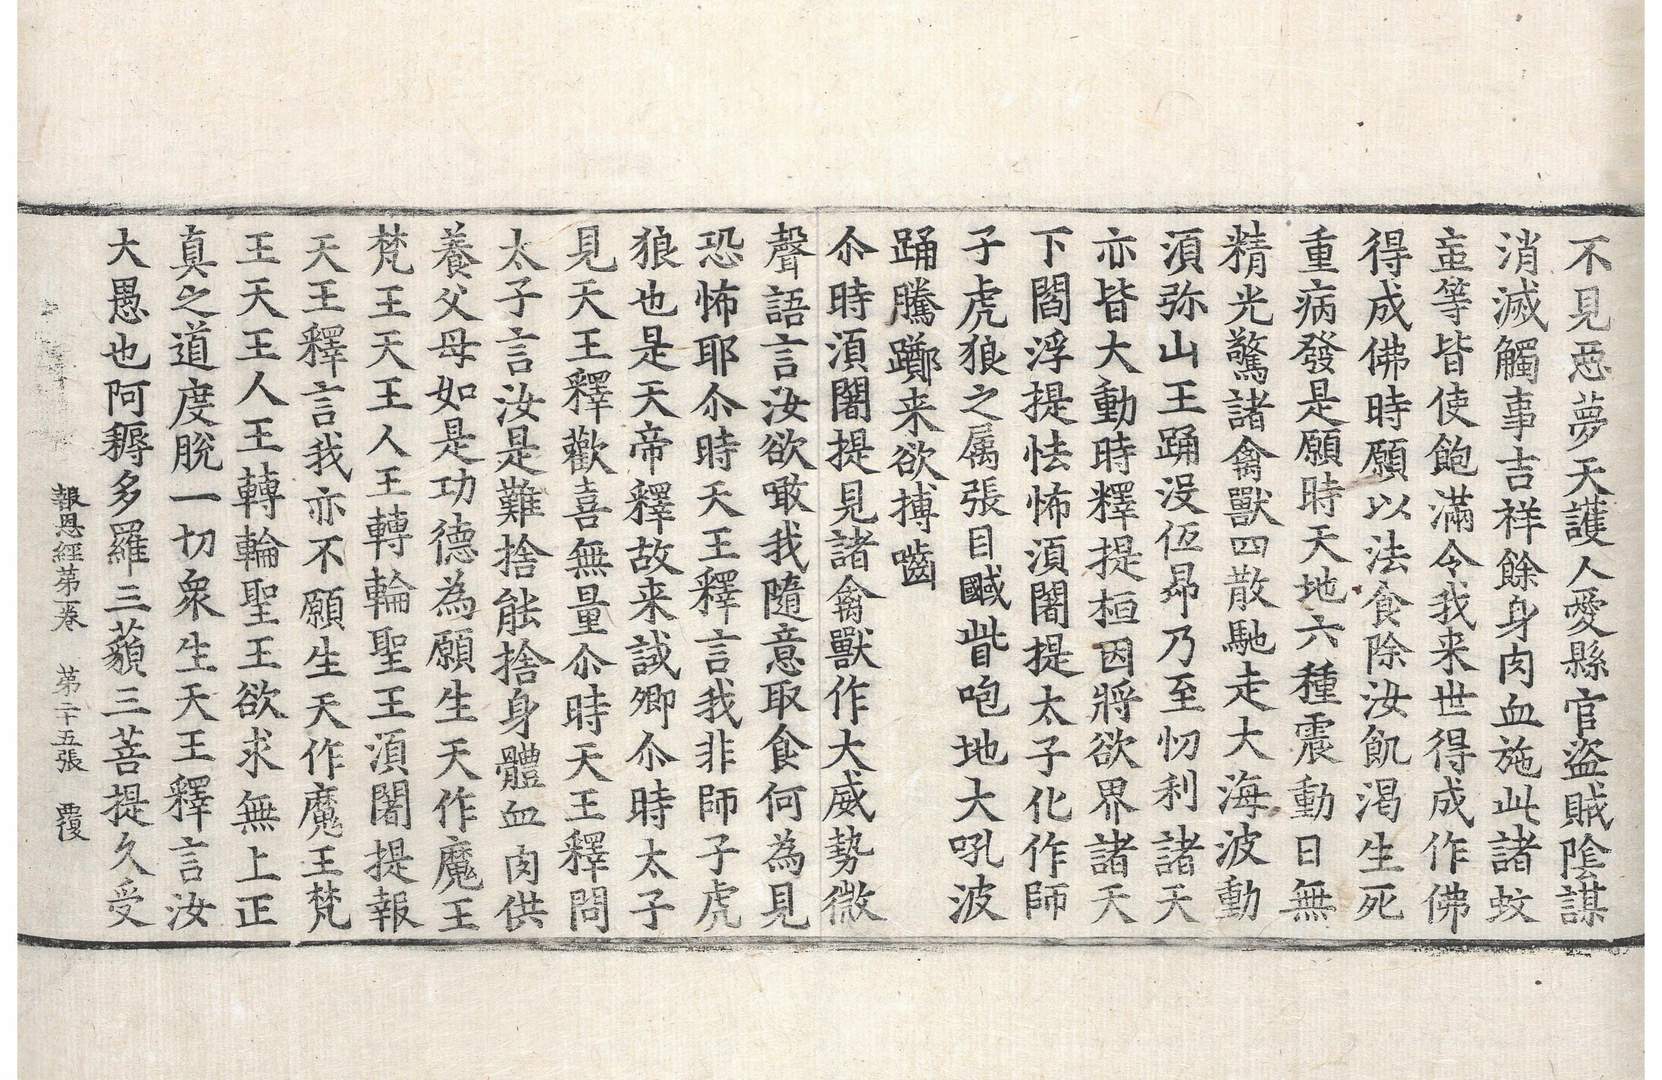 不見惡夢天護人愛縣官盜賊陰謀
消滅觸事吉祥餘身肉血施此諸蚊
䖟等皆使飽滿令我来世得成作佛
得成佛時願以法食除汝飢渴生死
重病發是願時天地六種震動日無
精光驚諸禽獸四散馳走大海波動
湏弥山王踊没仾昻乃至忉利諸天
亦皆大動時釋提桓因將欲界諸天
下閻浮提怯怖湏闍提太子化作師
子虎狼之属張目䶢眥咆地大吼波
踊騰躑来欲搏嚙
尒時湏闍提見諸禽獸作大威勢微
聲語言汝欲噉我隨意取食何為見
恐怖耶尒時天王釋言我非師子虎
狼也是天帝釋故来試卿尒時太子
見天王釋歡喜無量尒時天王釋問
太子言汝是難捨能捨身體血肉供
養父母如是功德為願生天作魔王
梵王天王人王轉輪聖王湏闍提報
天王釋言我亦不願生天作魔王梵
王天王人王轉輪聖王欲求無上正
真之道度脫一切衆生天王釋言汝
大愚也阿耨多羅三藐三菩提久受
報恩經第一卷 第二十五張 覆